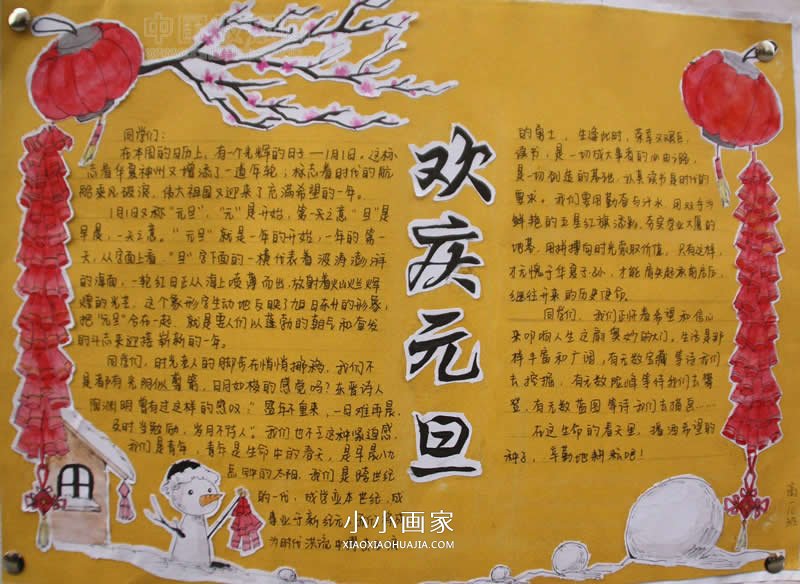 欢庆元旦
同学们:
在本国的日历上,有一个光辉的日子——1月1日。这标
志着华夏神州又增添了一道年轮;标志着时代的航
船乘风破浪,伟大祖国又迎来了充满希望的一年。
1月1日又称“元旦”,“元”是开始,第一天之意“旦”是
早晨,一天之意。“元旦”就是一年的开始,一年的第一
天,从字面上看,“旦”字下面的一横代表着波涛澎湃
的海面,一轮红日正从海上喷薄而出,放射着灿烂辉
煌的光芒,这个象形字生动地反映了旭日东升的形象,
把“元旦”合在一起,就是要人们以蓬勃的朝气和奋发
的斗志来迎接崭新的一年。
同学们,时光老人的脚步在悄悄挪移,我们不
是都有光阴似箭,日月如梭的感觉吗?东晋诗人
陶渊明曾有过这样的感叹:“盛年不重来,一日难再晨,
及时当勉励,岁月不待人”。我们也不乏这种紧迫感,
我们是青年,青年是生命中的春天,是早晨八九
点钟的太阳,我们是跨世纪
的一代,成贤业本世纪,成
事业于新纪元
为时代洪流中
的勇士,生逢此时,荣幸又艰巨,
读书,是一切成大事者的必由之路,
是一切创造的基础,认真读书是时代的
要求。我们要用勤奋与汗水,用双手为
鲜艳的五星红旗添彩,夯实专业大厦的
地基,用拼搏向时光索取价值,只有这样,
才无愧于华夏子孙,才能肩负起承前启后,
继往开来的历史使命。
同学们,我们正怀着希望和信心
来叩响人生之扇奥妙的大门,生活是那
样丰富和广阔,有无数宝藏等待我们
去挖掘,有无数险峰等待我们去攀
登,有无数蓝图等待我们去描画……
在这生命的春天里,播洒希望的
种子,辛勤地耕耘吧!
小小画家
XIAOXIAOHUAJIA.COM